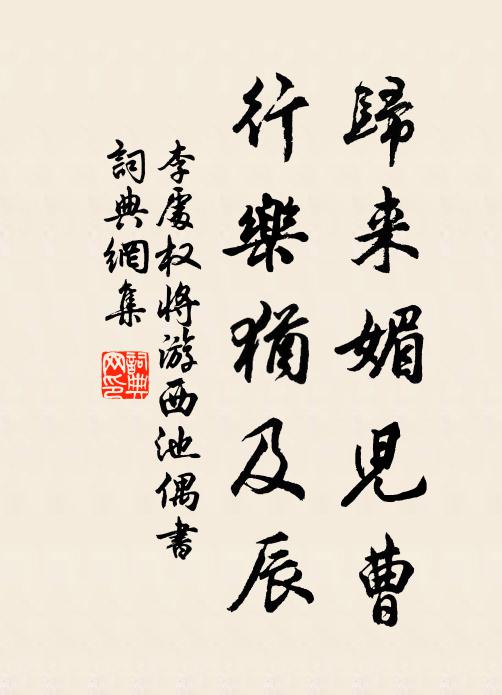 歸来媚兒曹
行樂猶及辰
李處权將游西池偶書
詞典網集
詞典網印